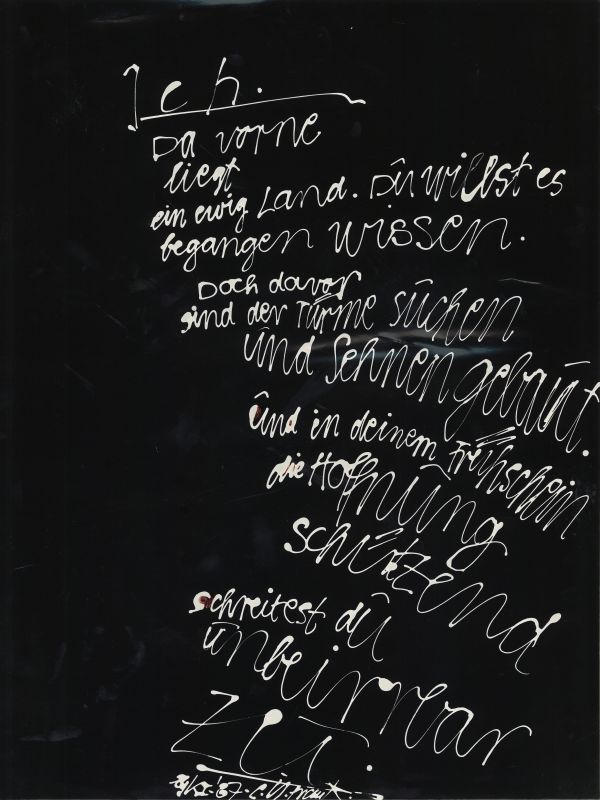 Ich.
Da vorne
liegt
ein ewig Land. Du willst es
begangen wissen.
Doch davor
sind der Türme suchen
und sehnen gebaut.
Und in deinem Frühschein
die Hoffnung
schützend
schreitest du
unbeirrbar
zu.